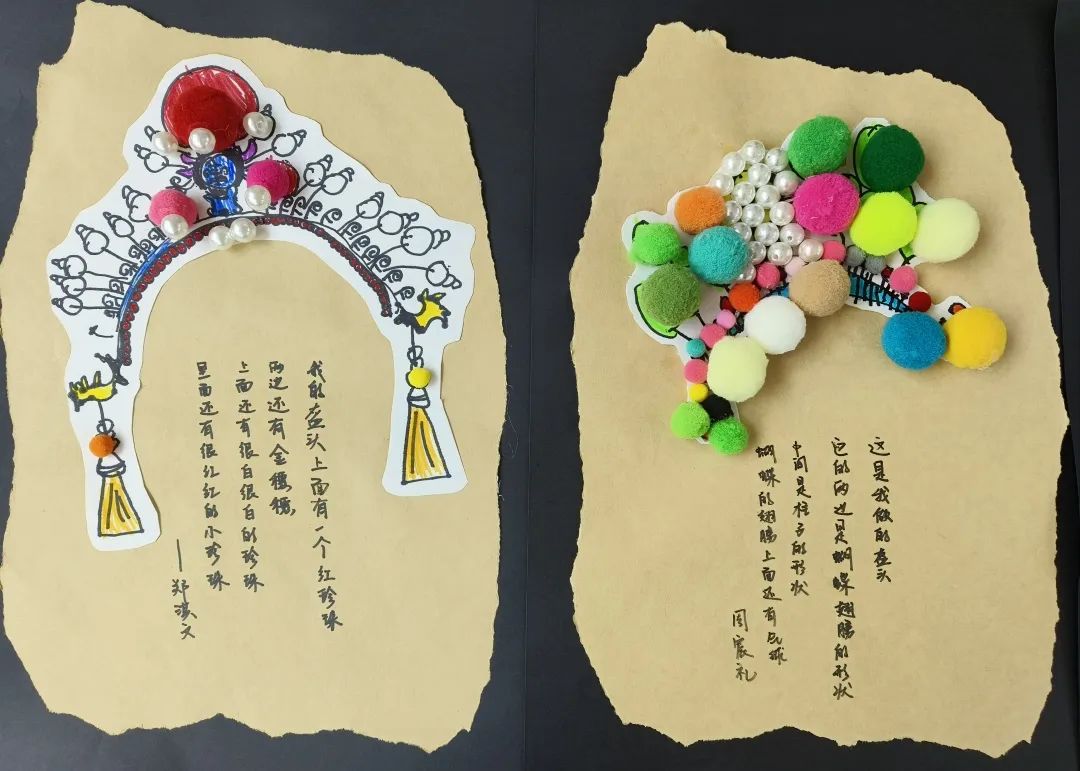 我的盔头上面有一个红珍珠
两边还有金穗穗,
上面还有很白很白的珍珠
里面还有很红红的小珍珠
——郑淇文
这是我做的盔头
它的两边是蝴蝶翅膀的形状
中间是柱子的形状
蝴蝶的翅膀上面还有气球
周宸礼